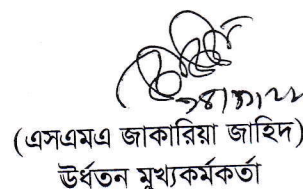 (এসএমএ জাকারিয়া জাহিদ)
ঊর্ধ্বতন মুখ্যকর্মকর্তা